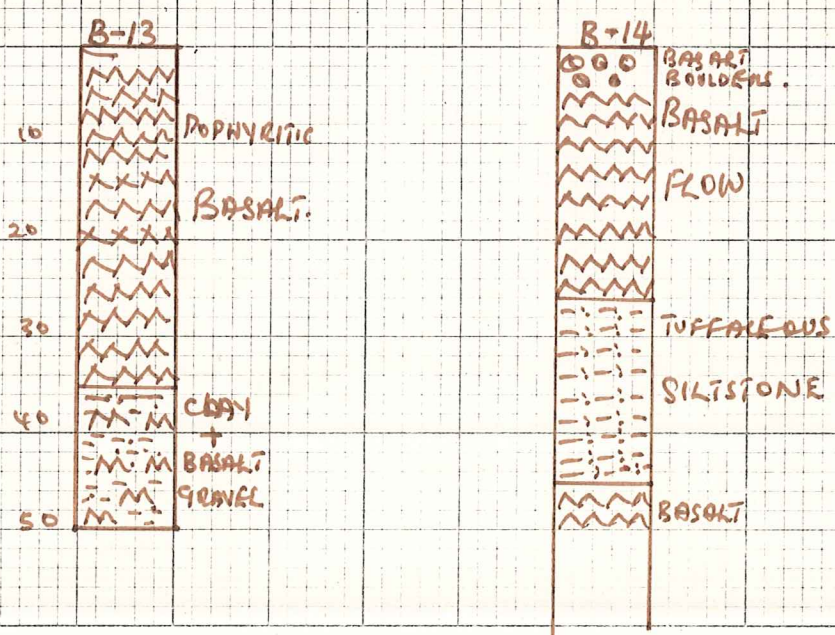 B-13
10
20
30
40
50
POPHYRITIC
BASALT.
CLAY
+
BASALT
GRAVEL
B-14
BASALT
BOULDERS.
BASALT
FLOW
TUFFACEOUS
SILTSTONE
BASALT